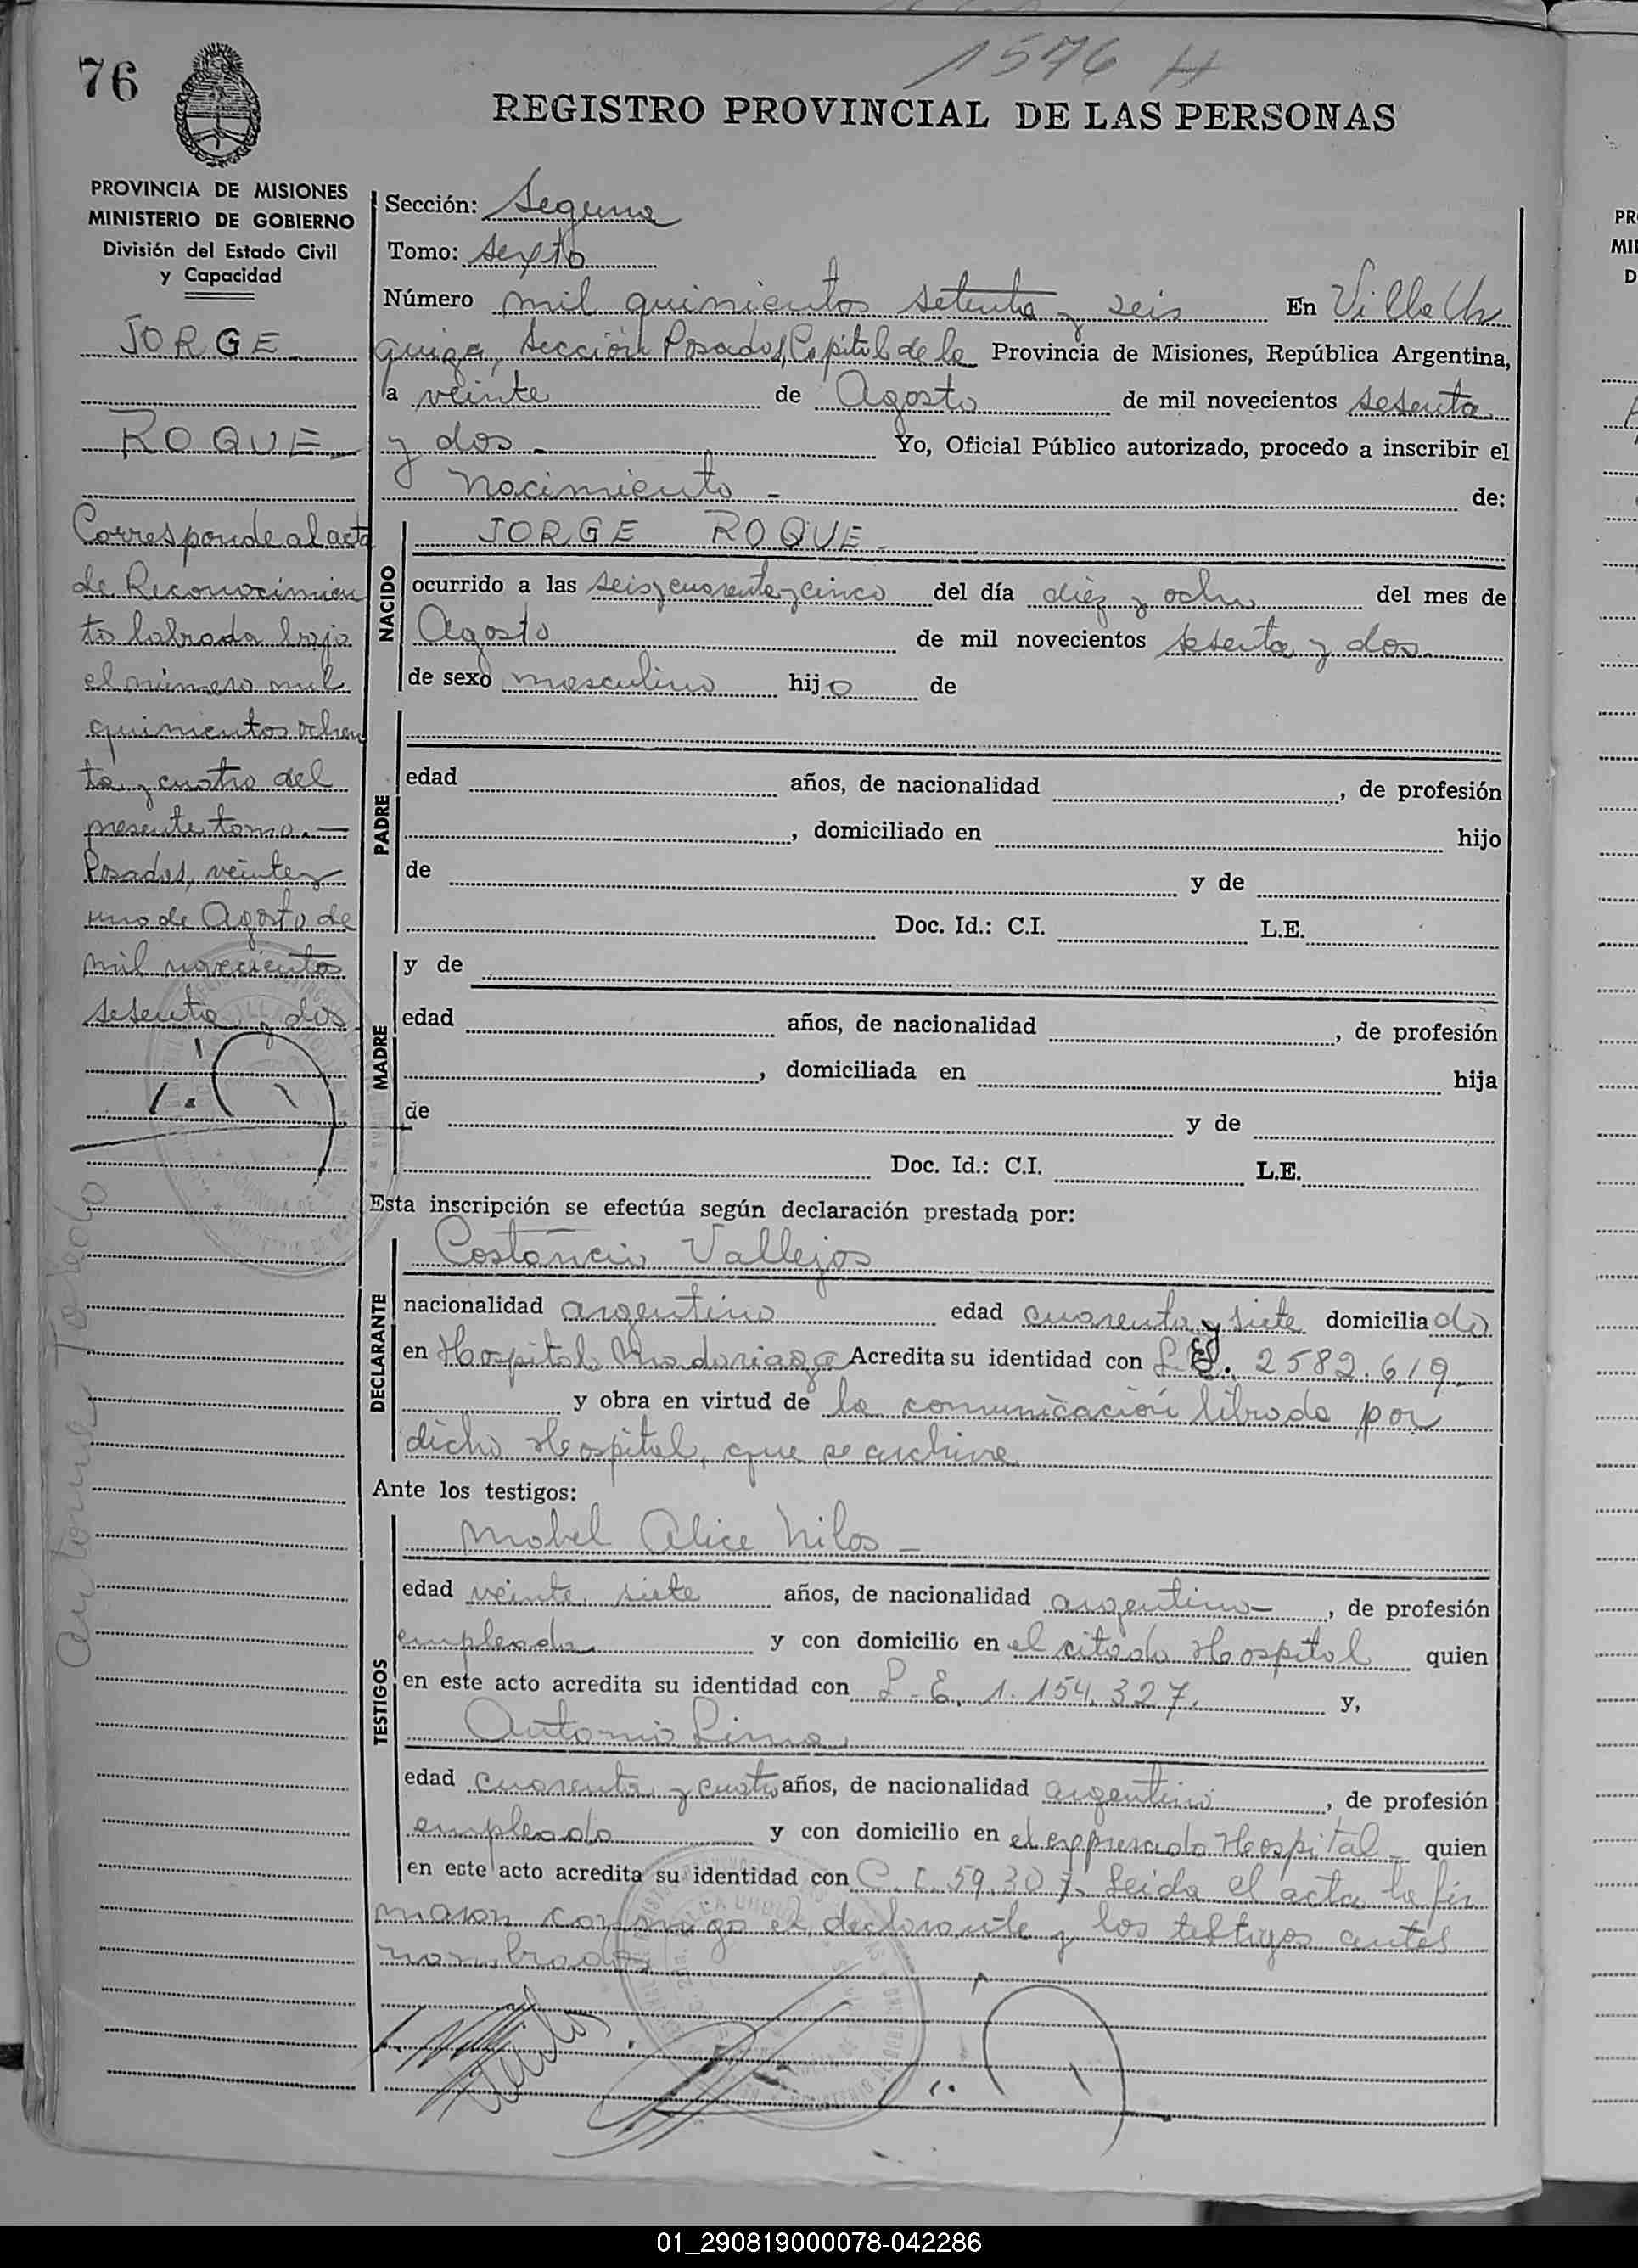 1576 H
76
REGISTRO PROVINCIAL DE LAS PERSONAS
PROVINCIA DE MISIONES
MINISTERIO DE GOBIERNO
División del Estado Civil
y Capacidad
JORGE
ROQUE
Corresponde al acta
de Reconocimien
to labrada bajo
el número mil
quinientos ochen
ta y cuatro del
presente tomo.—
Posadas, veinte y
uno de Agosto de
mil novecientos
setenta y dos
Sección: Segunda
Tomo: sexto
Número mil quinientos setenta y seis En Villa Ur
quiza, Sección Posadas, Capital de la Provincia de Misiones, República Argentina,
a veinte de Agosto de mil novecientos setenta
y dos - Yo, Oficial Público autorizado, procedo a inscribir el
Nacimiento - de:
NACIDO
JORGE ROQUE -
ocurrido a las seis y cuarenta y cinco del día diez y ocho del mes de
Agosto de mil novecientos setenta y dos
de sexo masculino hijo de
PADRE
edad años, de nacionalidad , de profesión
, domiciliado en hijo
de y de
Doc. Id.: C.I. L.E.
MADRE
y de
edad años, de nacionalidad , de profesión
, domiciliada en hija
de y de
Doc. Id.: C.I. L.E.
Esta inscripción se efectúa según declaración prestada por:
DECLARANTE
Costancio Vallejos
nacionalidad argentino edad cuarenta y siete domiciliado
en Hospital Madariaga Acredita su identidad con L.E. 2582.619
y obra en virtud de la comunicación librada por
dicho Hospital, que se archiva
Ante los testigos:
TESTIGOS
Mabel Alice Nilos -
edad veinte siete años, de nacionalidad argentina , de profesión
empleada y con domicilio en el citado Hospital quien
en este acto acredita su identidad con L.E. 1.154.327. y,
Antonio Lima
edad cuarenta y cuatro años, de nacionalidad argentino , de profesión
empleado y con domicilio en el expresado Hospital quien
en este acto acredita su identidad con C.I. 59.307. Leida el acta la fir
maron conmigo el declarante y los testigos antes
nombrados
01_290819000078-042286